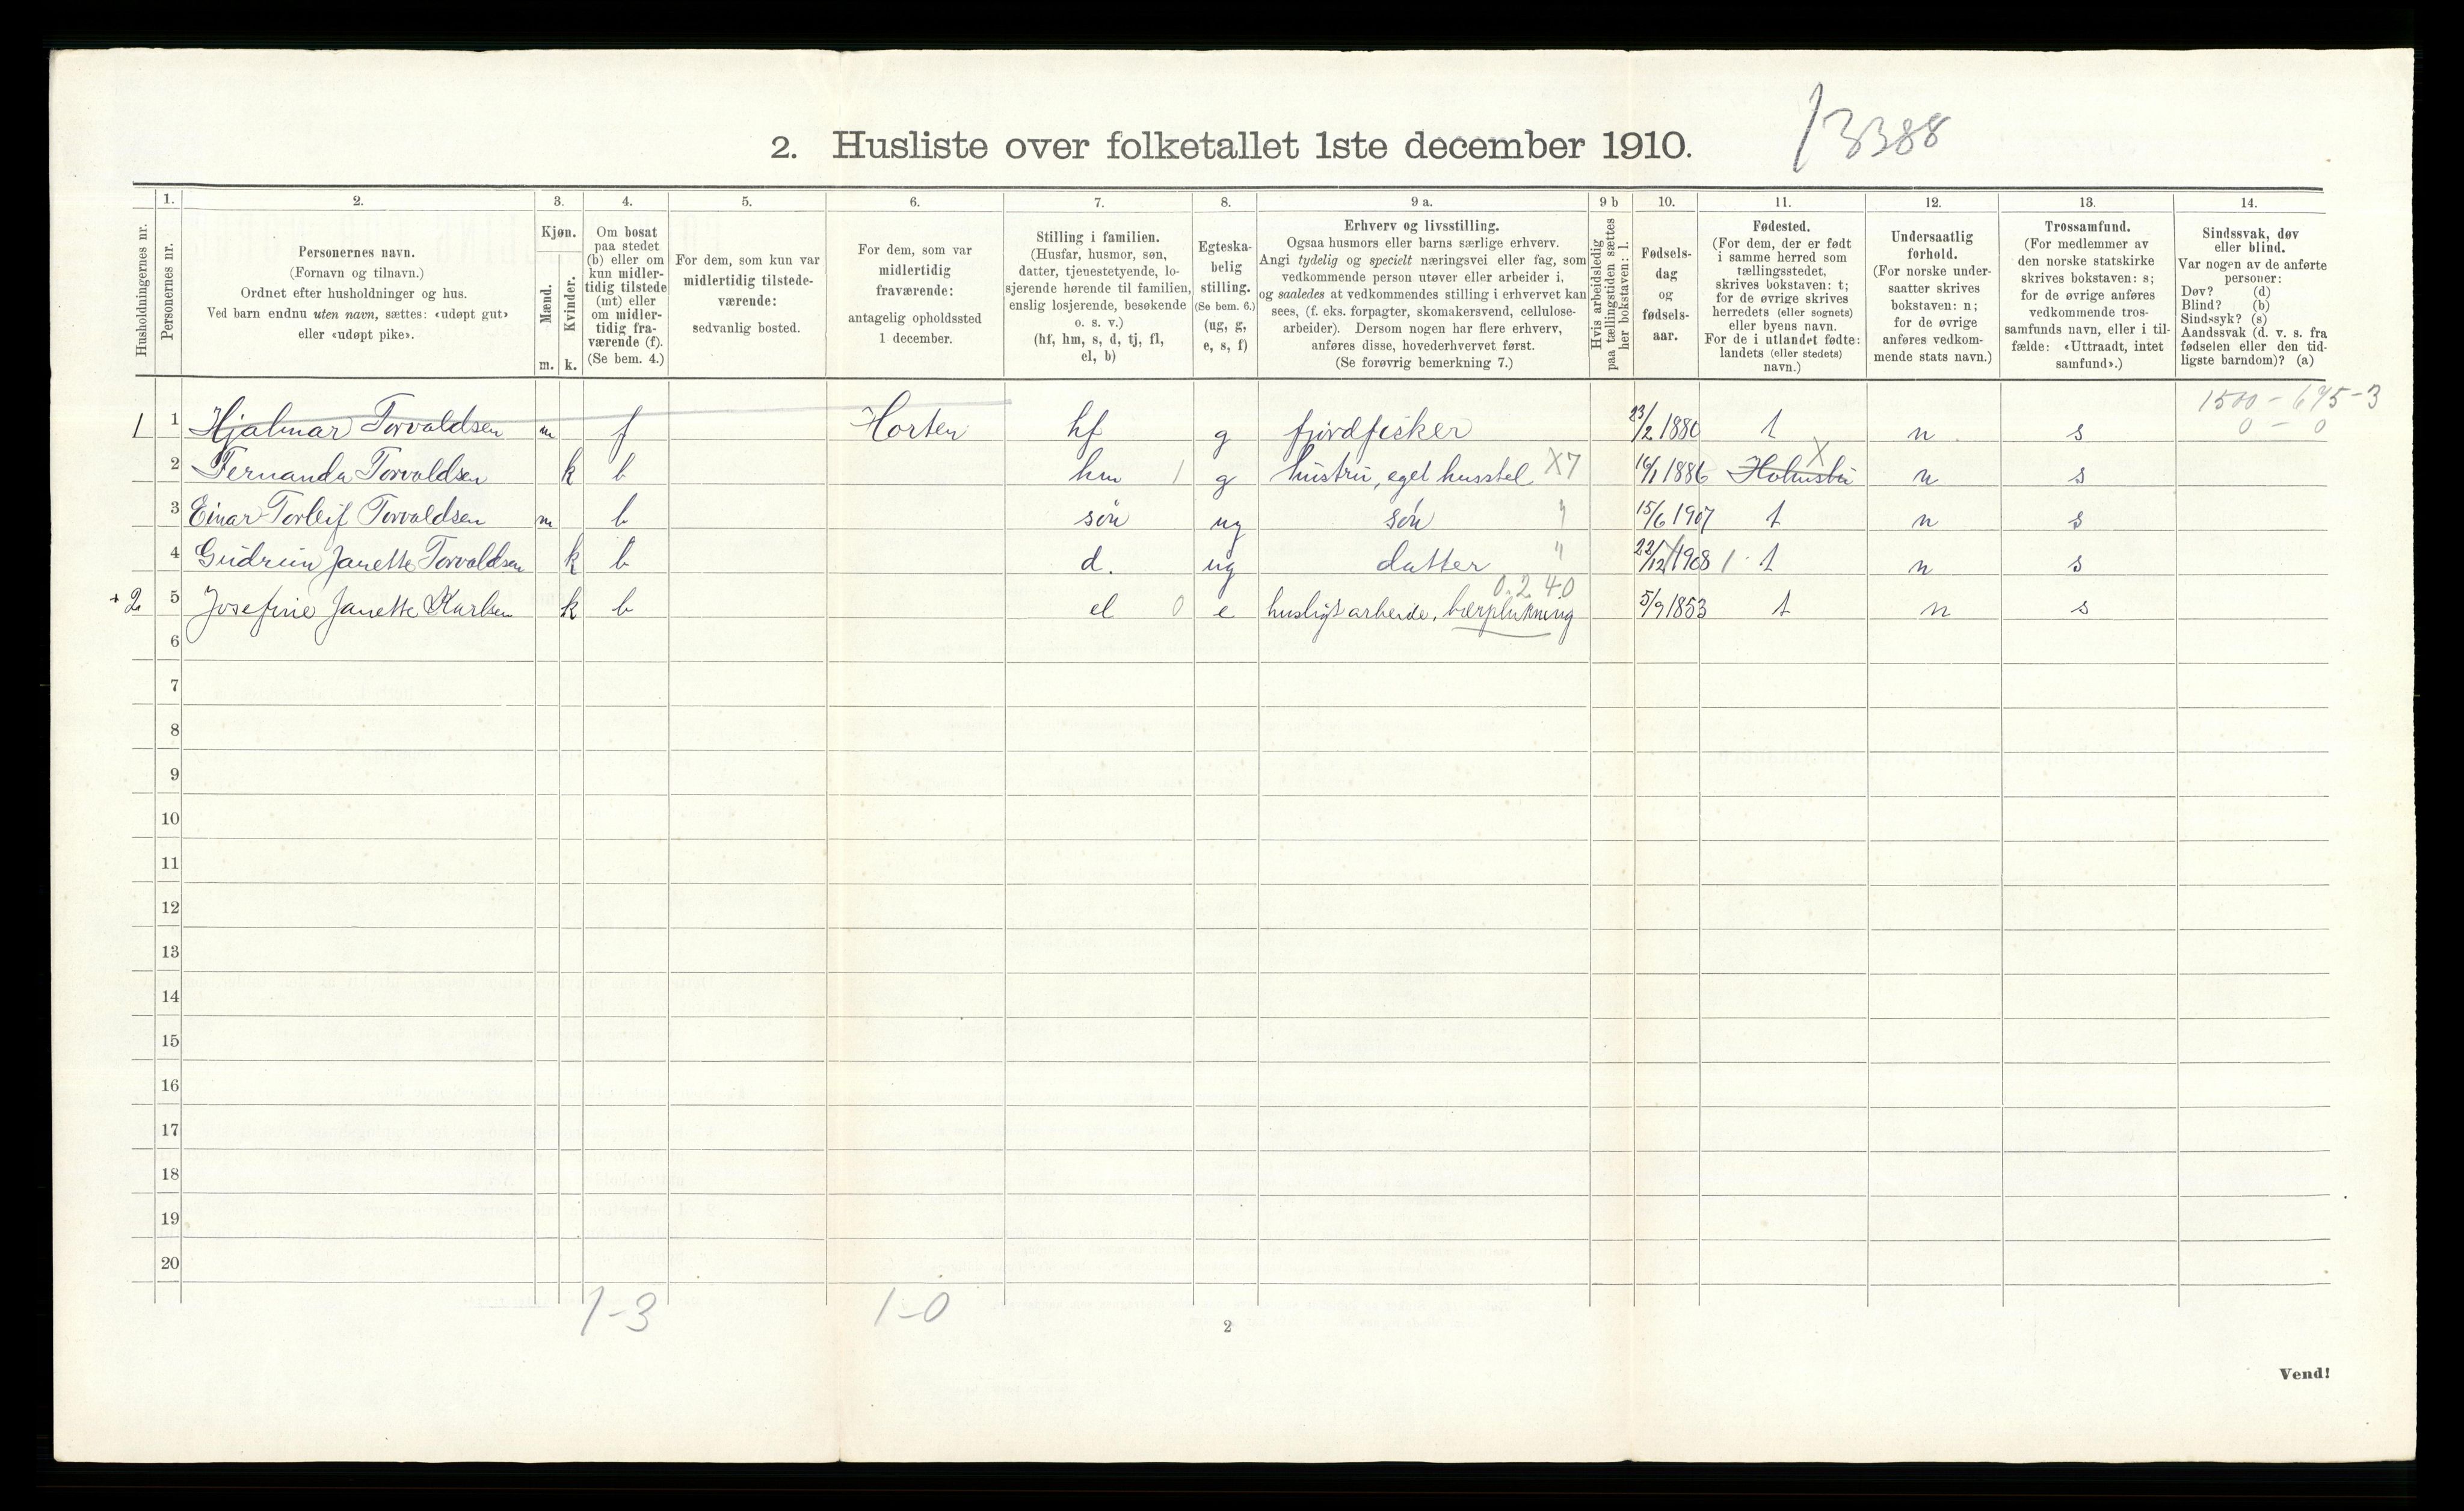 13388
2. Husliste over folketallet 1ste december 1910.
Husholdningernes nr.
1.
Personernes nr.
2.
Personernes navn.
(Fornavn og tilnavn.)
Ordnet efter husholdninger og hus.
Ved barn endnu uten navn, sættes: «udøpt gut»
eller «udøpt pike».
3.
Kjøn.
Mænd.
Kvinder.
m. k.
4.
Om bosat
paa stedet
(b) eller om
kun midler-
tidig tilstede
(mt) eller
om midler-
tidig fra-
værende (f).
(Se bem. 4.)
5.
For dem, som kun var
midlertidig tilstede-
værende:
sedvanlig bosted.
6.
For dem, som var
midlertidig
fraværende:
antagelig opholdssted
1 december.
7.
Stilling i familien.
(Husfar, husmor, søn,
datter, tjenestetyende, lo-
sjerende hørende til familien,
enslig losjerende, besøkende
o. s. v.)
(hf, hm, s, d, tj, fl,
el, b)
8.
Egteska-
belig
stilling.
(Se bem. 6.)
(ug, g,
e, s, f)
9 a.
Erhverv og livsstilling.
Ogsaa husmors eller barns særlige erhverv.
Angi tydelig og specielt næringsvei eller fag, som
vedkommende person utøver eller arbeider i,
og saaledes at vedkommendes stilling i erhvervet kan
sees, (f. eks. forpagter, skomakersvend, cellulose-
arbeider). Dersom nogen har flere erhverv,
anføres disse, hovederhvervet først.
(Se forøvrig bemerkning 7.)
9 b
Hvis arbeidsledig
paa tællingstiden sættes
her bokstaven: l.
10.
Fødsels-
dag
og
fødsels-
aar.
11.
Fødested.
(For dem, der er født
i samme herred som
tællingsstedet,
skrives bokstaven: t;
for de øvrige skrives
herredets (eller sognets)
eller byens navn.
For de i utlandet fødte:
landets (eller stedets)
navn.)
12.
Undersaatlig
forhold.
(For norske under-
saatter skrives
bokstaven: n;
for de øvrige
anføres vedkom-
mende stats navn.)
13.
Trossamfund.
(For medlemmer av
den norske statskirke
skrives bokstaven: s;
for de øvrige anføres
vedkommende tros-
samfunds navn, eller i til-
fælde: «Uttraadt, intet
samfund».)
14.
Sindssvak, døv
eller blind.
Var nogen av de anførte
personer:
Døv? (d)
Blind? (b)
Sindssyk? (s)
Aandssvak (d. v. s. fra
fødselen eller den tid-
ligste barndom)? (a)
1500 - 675-3
0 - 0
1 1 Hjalmar Torvaldsen m f Horten hf g fjordfisker 23/2 1880 t n s
2 Fernanda Torvaldsen k b hm 1 g hustru, eget husstel X7 16/1 1886 Holmsbu X n s
3 Einar Torleif Torvaldsen m b søn ug søn " 15/6 1907 t n s
4 Gudrun Janette Torvaldsen k b d. ug datter " 22/12 1908 t n s
0.2.40
+2 5 Josefine Janette Karlsen k b el 0 e husligt arbeide, bærplukning 5/9 1853 t n s
6
7
8
9
10
11
12
13
14
15
16
17
18
19
20
1-3 1-0
2
Vend!